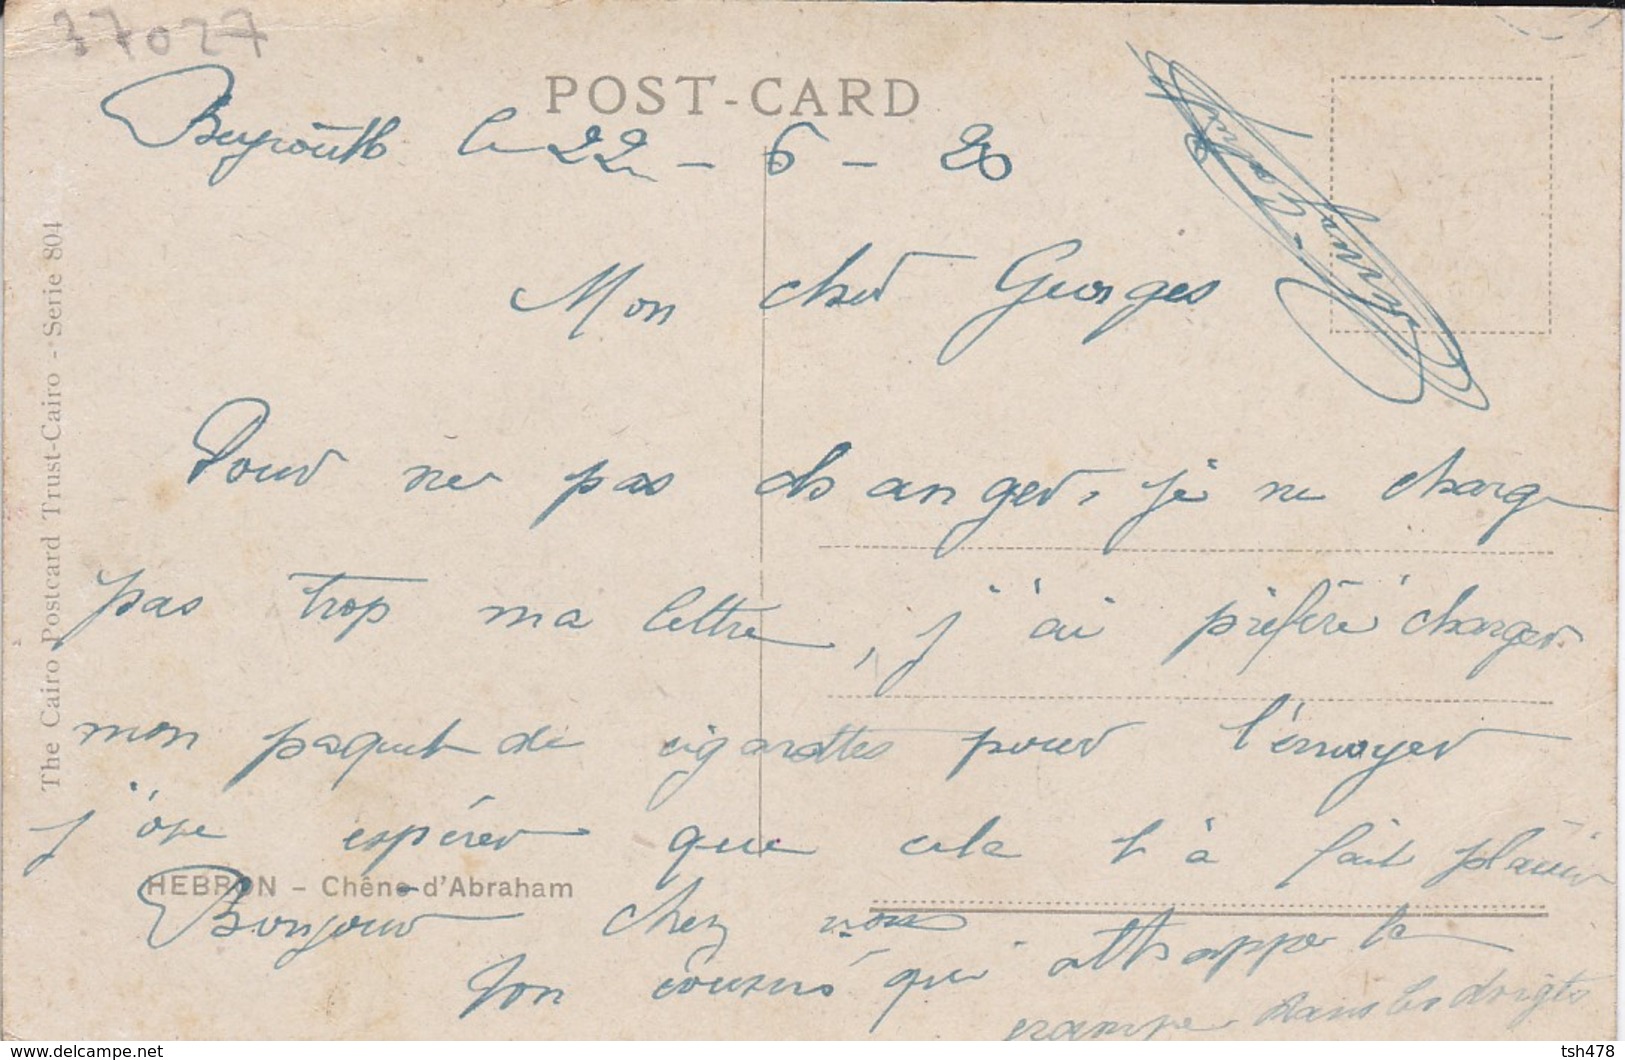 37027
POST-CARD
Beyrouth le 22 - 6 - 20
Mon cher Georges
Pour ne pas changer, je ne charge
pas trop ma lettre, j'ai préféré charger
mon paquet de cigarettes pour l'envoyer
j'ose espérer que cela t'a fait plaisir
HEBRON - Chêne d'Abraham
Bonjour chez vous
Ton cousin qui atthrappe la
crampe dans les doigts
The Cairo Postcard Trust-Cairo - Serie 804
delcampe.net
tsh478